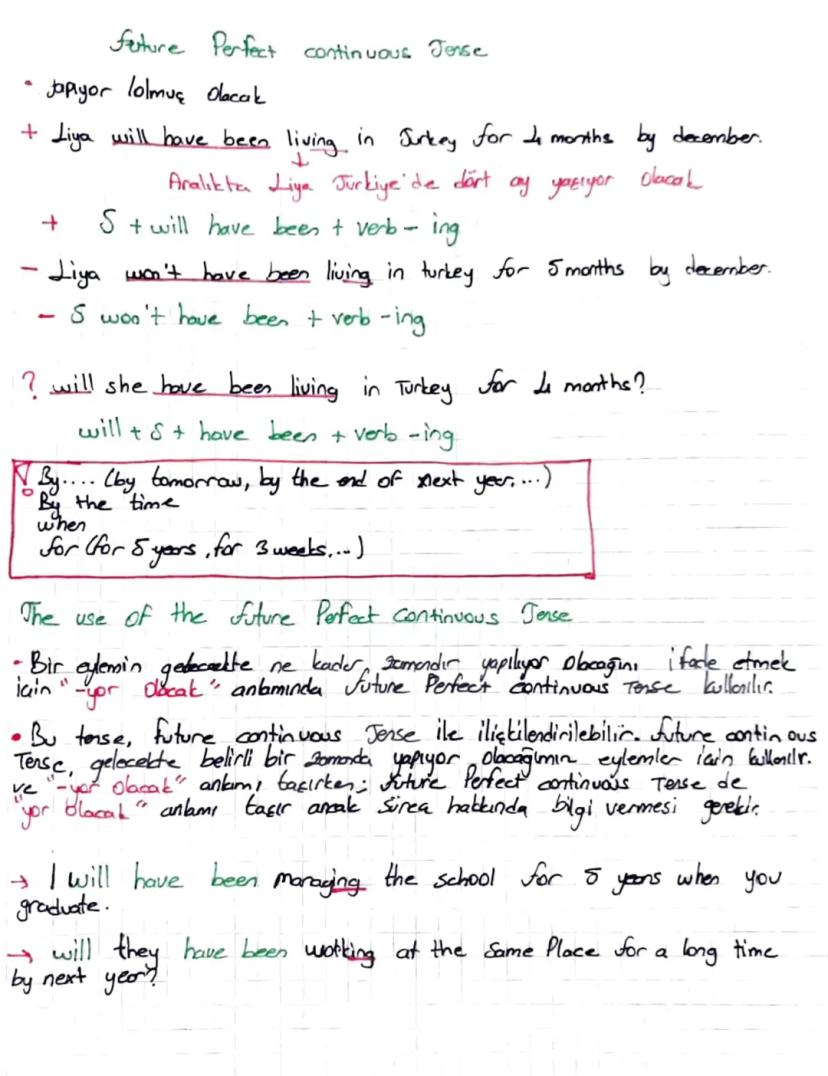 future Perfect continuous Tense
• yapıyor /olmuş olacak
+ Liya will have been living in Turkey for 4 months by december.
Aralıkta Liya Türkiye'de dört ay yaşıyor olacak
+ S + will have been + verb - ing
- Liya won't have been living in turkey for 5 months by december.
- S won't have been + verb -ing
? will she have been living in Turkey for 4 months?
will + S + have been + verb -ing
! By.... (by tomorrow, by the end of next year....)
By the time
when
for (for 5 years, for 3 weeks,...)
The use of the future Perfect Continuous Tense
• Bir eylemin gelecekte ne kadar zamandır yapılıyor olacağını ifade etmek
için "-yor olacak" anlamında future Perfect continuous Tense kullanılır.
• Bu tense, future continuous Tense ile ilişkilendirilebilir. future continous
Tense, gelecekte belirli bir zamanda yapıyor olacağımın eylemler için kullanılr.
ve "-yor olacak" anlamı taşırken; future Perfect continuous Tense de
"yor olacak" anlamı taşır ancak sürea hakkında bilgi vermesi gerekir.
→ I will have been managing the school for 5 years when you
graduate.
→ will they have been working at the same Place for a long time
by next year?